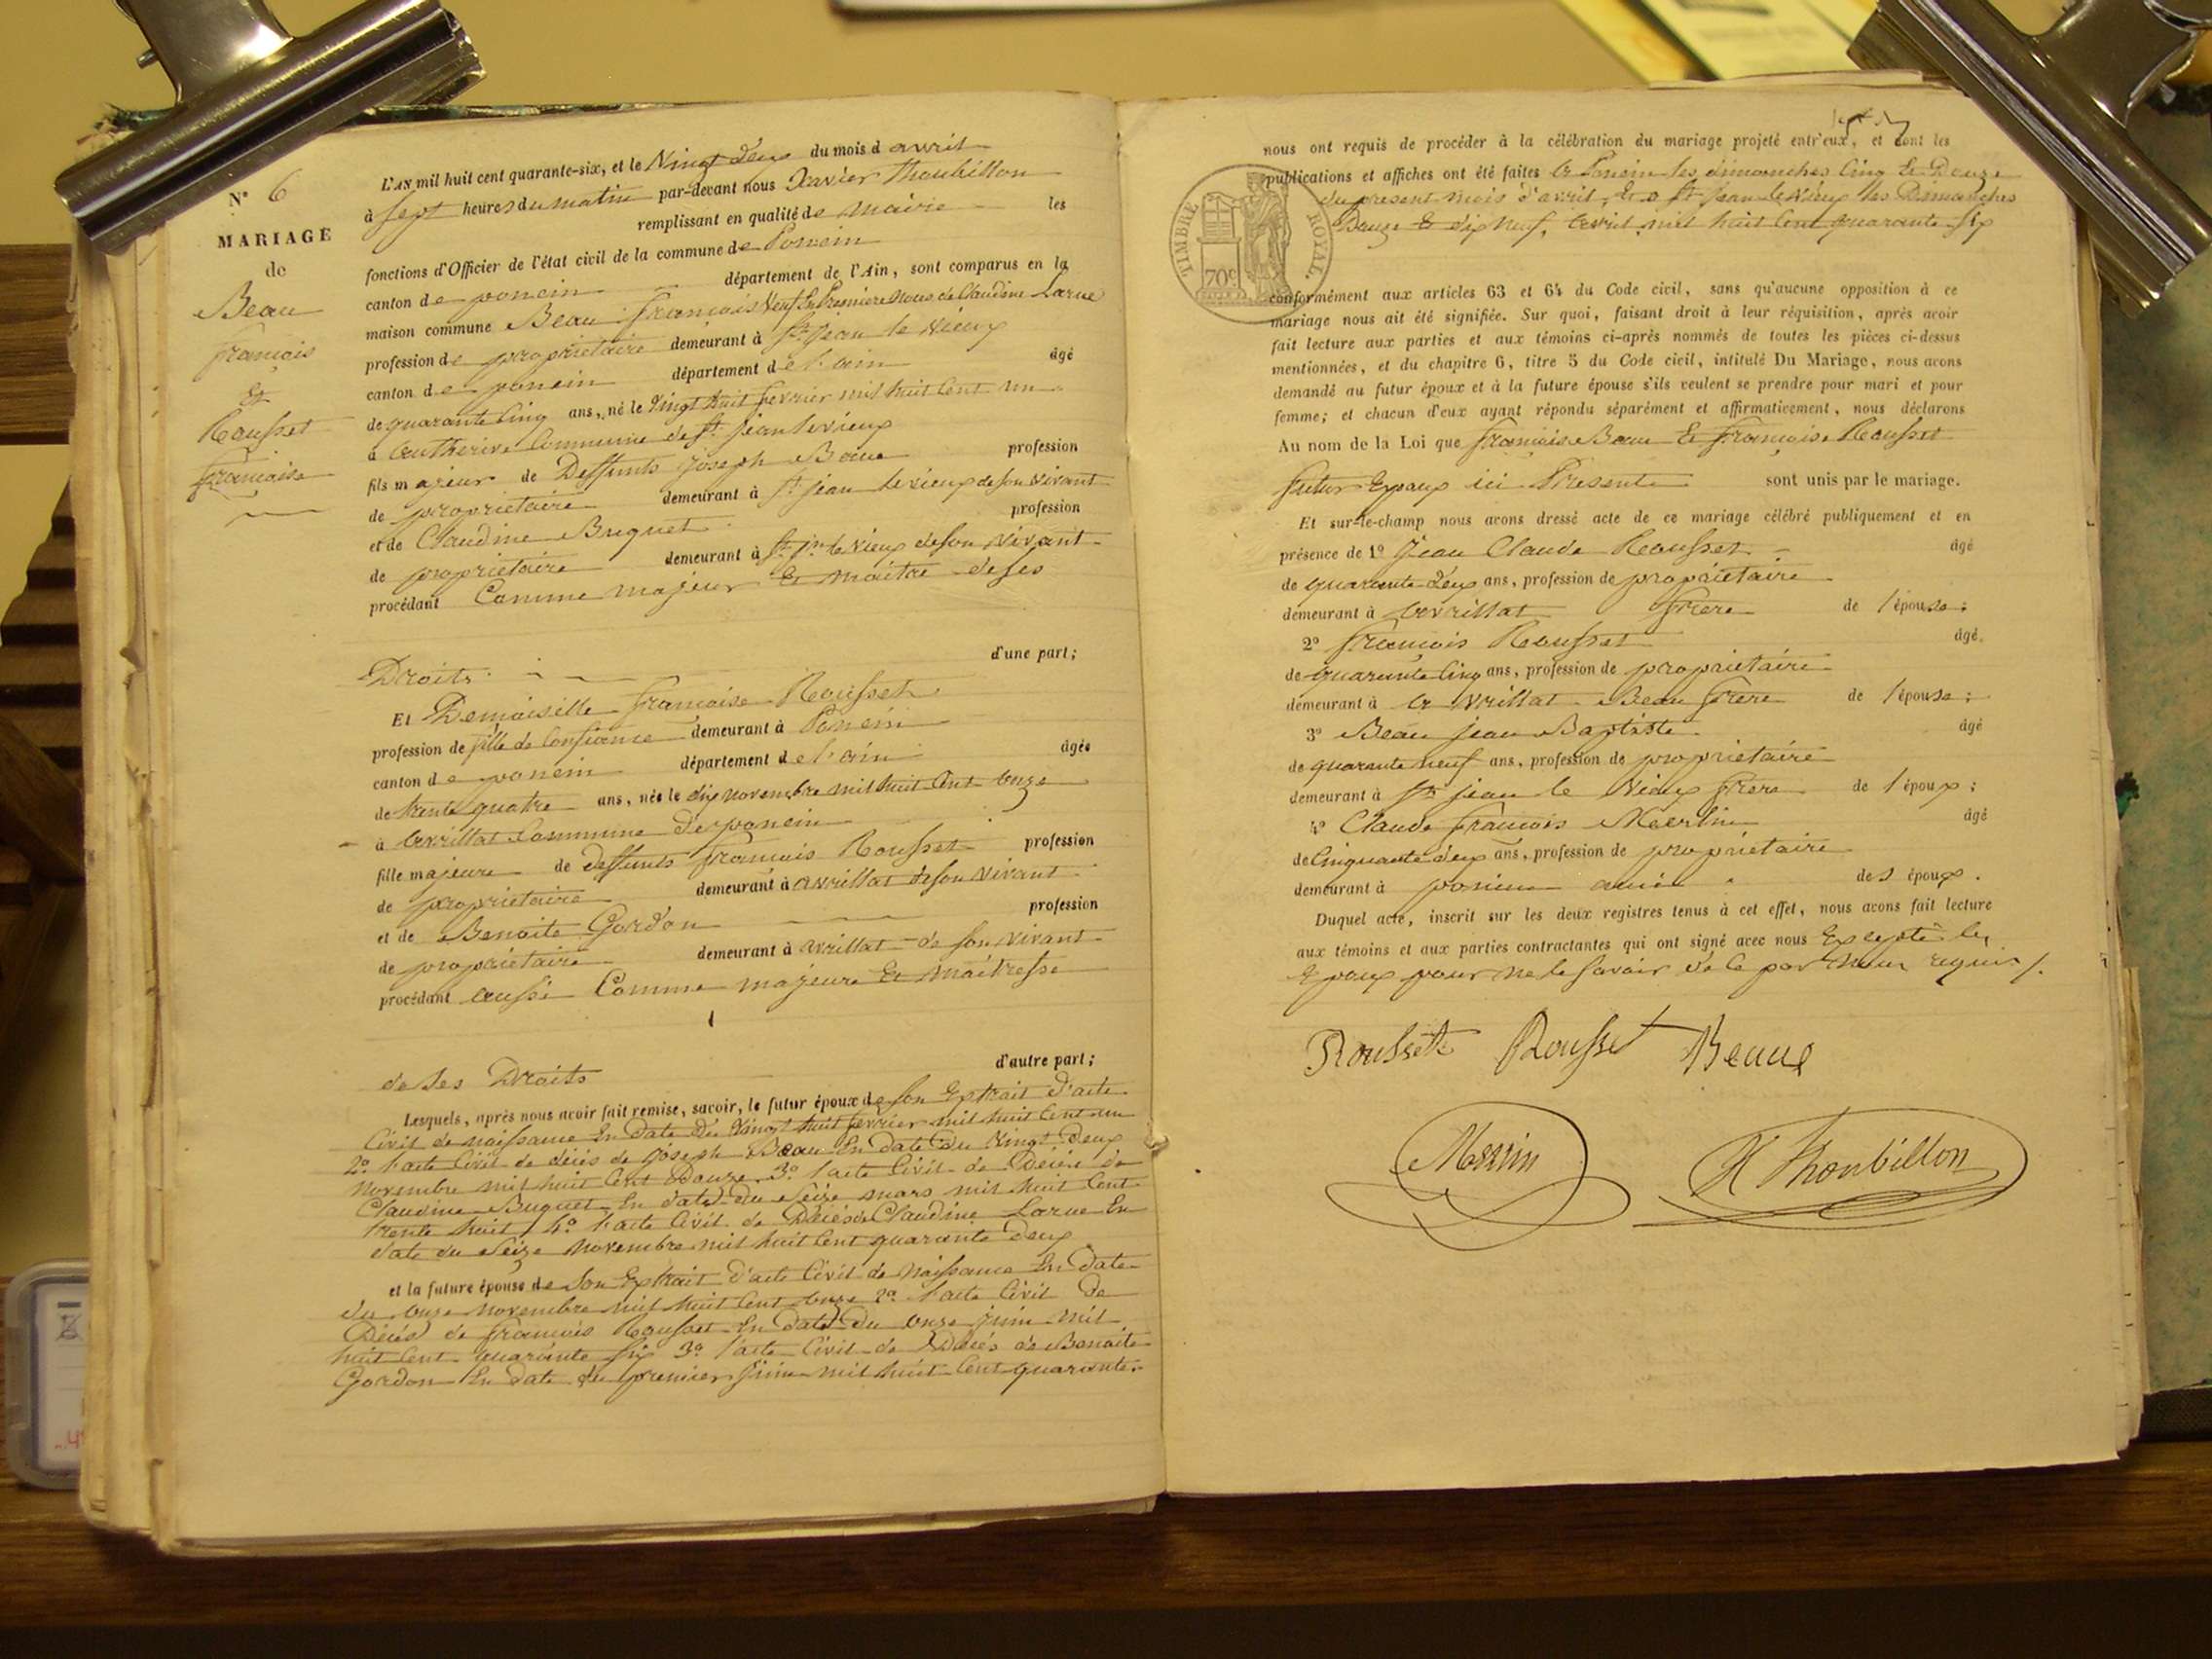 N° 6
MARIAGE
de
Beau
françois
Et
Rousset
françoise
L'AN mil huit cent quarante-six, et le Vingt deux du mois d avril
à Sept heures du matin par-devant nous Xavier Thoubillon
remplissant en qualité de maire les
fonctions d'Officier de l'état civil de la commune de Poncin
canton de poncin département de l'Ain, sont comparus en la
maison commune Beau françois Veuf En Premiere Noces de Claudine Larue
profession de propriétaire demeurant à St jean le Vieux
canton de poncin département de l'ain âgé
de quarante Cinq ans, né le Vingt huit fevrier mil huit Cent un
a hauterive Commune de St jean le vieux
fils majeur de Deffunts Joseph Beau profession
de propriétaire demeurant à St jean le vieux de son vivant
et de Claudine Buquet profession
de propriétaire demeurant à St jn le Vieux de son Vivant
procédant Comme majeur Et maitre de ses
Droits d'une part;
Et Demoiselle françoise Rousset
profession de fille de Confiance demeurant à Poncin
canton de poncin département de l'ain âgée
de trente quatre ans, née le dix novembre mil huit Cent Onze
à Avrillat Commune de poncin
fille majeure de deffunts françois Rousset profession
de propriétaire demeurant à avrillat de son Vivant
et de Benoite Gordon profession
de propriétaire demeurant à avrillat de son vivant
procédant aussi Comme majeure Et maitresse
de ses Droits d'autre part;
Lesquels, après nous avoir fait remise, savoir, le futur époux de son Extrait d'acte
Civil de naissance En date Du Vingt huit fevrier mil huit Cent un
2° l'acte Civil de décès de Joseph Beau En date Du Vingt Deux
novembre mil huit Cent Douze 3° l'acte Civil de Décès de
Claudine Buquet En date du Seize mars mil huit Cent
trente huit, 4° l'acte Civil de Décès de Claudine Larue En
date du Seize novembre mil huit Cent quarante deux
et la future épouse de Son Extrait d'acte Civil de Naissance En Date
du Onze novembre mil huit Cent Onze 2° l'acte Civil De
Décès de françois Rousset En Date Du Onze juin mil
huit Cent quarante Six 3° l'acte Civil de Décès de Benoite
Gordon En Date du premier juin mil huit Cent quarante.
nous ont requis de procéder à la célébration du mariage projeté entr'eux, et dont les
publications et affiches ont été faites a Poncin les dimanches Cinq Et Douze
du present mois d'avril, Et a St Jean le Vieux les Dimanches
Douze Et dix neuf, avril mil huit Cent quarante Six
TIMBRE ROYAL.
70c
conformément aux articles 63 et 64 du Code civil, sans qu'aucune opposition à ce
mariage nous ait été signifiée. Sur quoi, faisant droit à leur réquisition, après avoir
fait lecture aux parties et aux témoins ci-après nommés de toutes les pièces ci-dessus
mentionnées, et du chapitre 6, titre 5 du Code cicil, intitulé Du Mariage, nous avons
demandé au futur époux et à la future épouse s'ils veulent se prendre pour mari et pour
femme; et chacun d'eux ayant répondu séparément et affirmativement, nous déclarons
Au nom de la Loi que françois Beau Et françoise Rousset
futur Epoux ici Present sont unis par le mariage.
Et sur-le-champ nous avons dressé acte de ce mariage célébré publiquement et en
présence de 1° Jean Claude Rousset âgé
de quarante deux ans, profession de propriétaire
demeurant à avrillat frere de l'épouse;
2° françois Rousset âgé
de quarante Cinq ans, profession de propriétaire
demeurant à avrillat Beau frere de l'épouse;
3° Beau jean Baptiste âgé
de quarante neuf ans, profession de propriétaire
demeurant à St jean le Vieux frere de l'époux;
4° Claude françois Merlin âgé
de Cinquante deux ans, profession de propriétaire
demeurant à poncin ami des époux.
Duquel acte, inscrit sur les deux registres tenus à cet effet, nous avons fait lecture
aux témoins et aux parties contractantes qui ont signé avec nous Excepté les
Epoux pour ne le Savoir de Ce par nous requis /.
Roussette Rousset Beaue
Merlin X Thoubillon